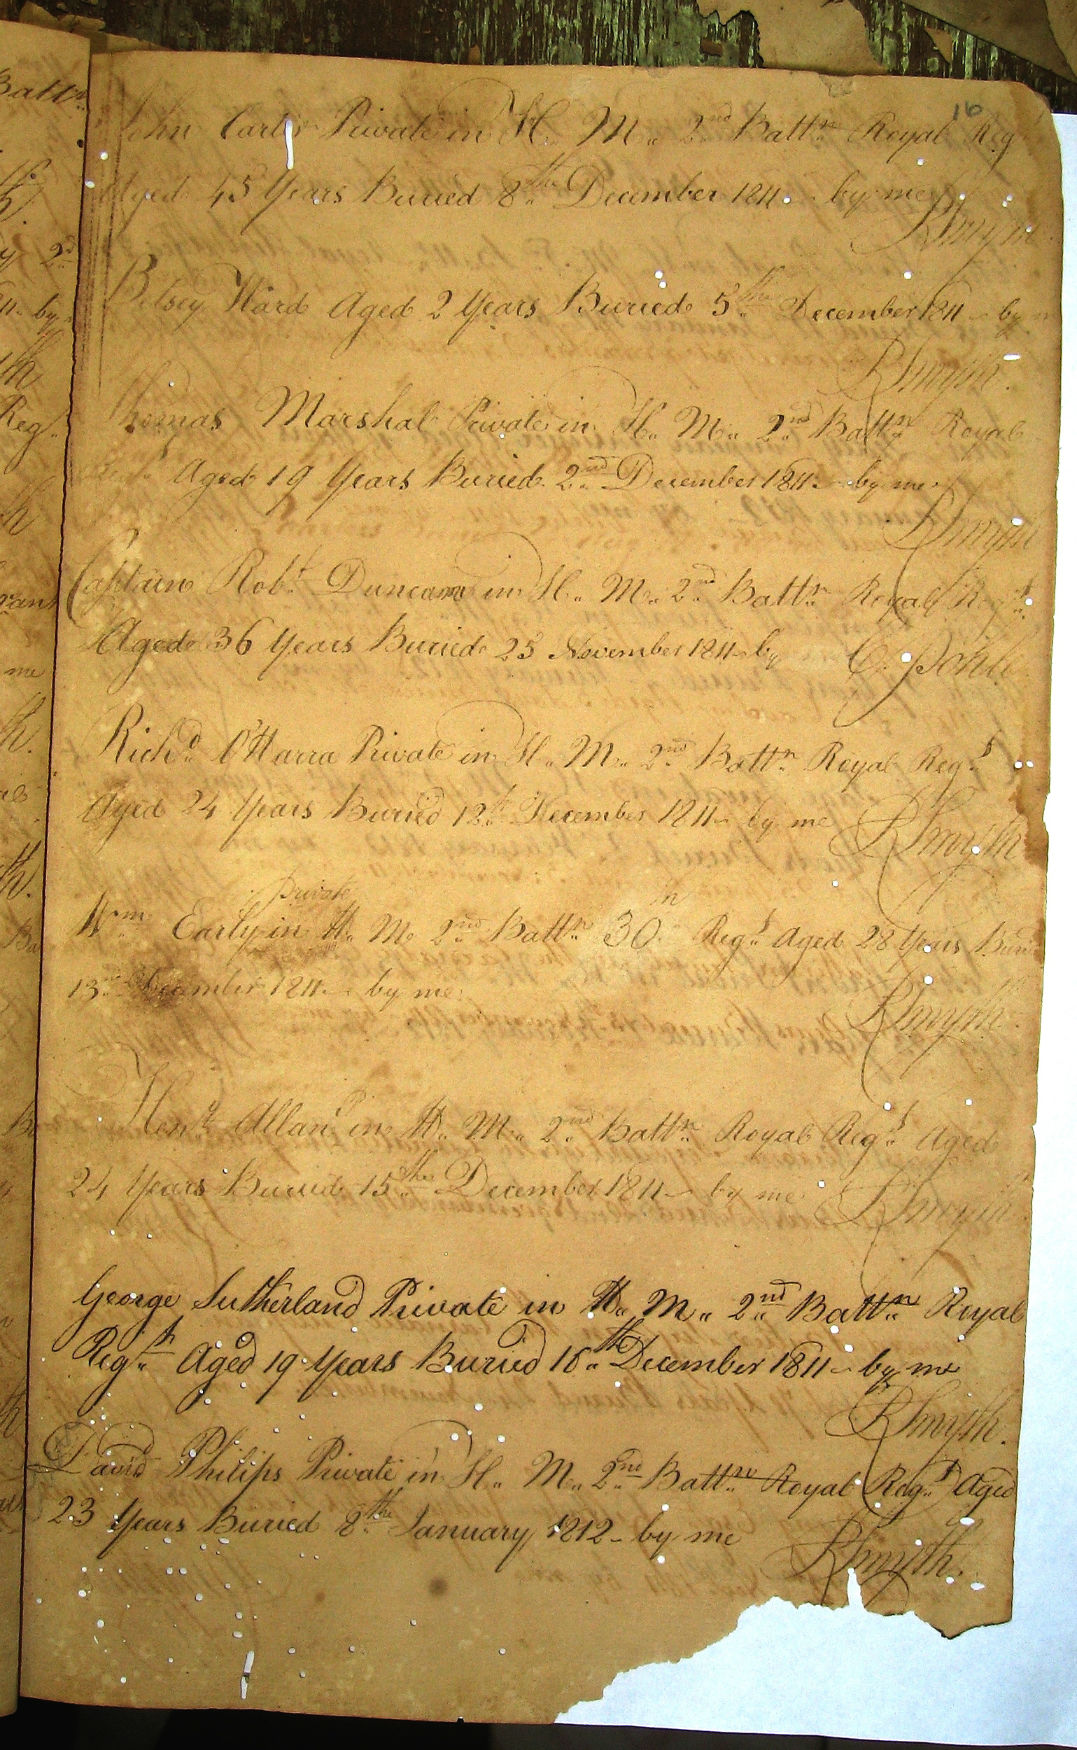 16
John Carter Private in H. M. 2nd Battn Royal Reg
Aged 45 Years Buried 8th December 1811 - by me
R Smyth
Betsey Ward Aged 2 Years Buried 5th December 1811 - by
R Smyth.
Thomas Marshal Private in H. M. 2nd Battn Royal
Aged 19 Years Buried 2nd December 1811 - by me
R Smyth
Captain Robt Duncan in H. M. 2nd Battn Royal Regt
Aged 36 Years Buried 25 November 1811 - by
Richd O'Harra Private in H. M. 2nd Battn Royal Regt
Aged 24 Years Buried 12th December 1811 - by me
R Smyth
private
Wm Early in H. M. 2nd Battn 30th Regt Aged 28 Years
13th December 1811 - by me
R Smyth
Henry Allan in H. M. 2nd Battn Royal Regt Aged
24 Years Buried 15th December 1811 - by me
R Smyth
George Sutherland Private in H. M. 2nd Battn Royal
Regt Aged 19 Years Buried 16th December 1811 - by me
R Smyth.
David Philips Private in H. M. 2nd Battn Royal Regt Aged
23 Years Buried 8th January 1812 - by me
R Smyth.